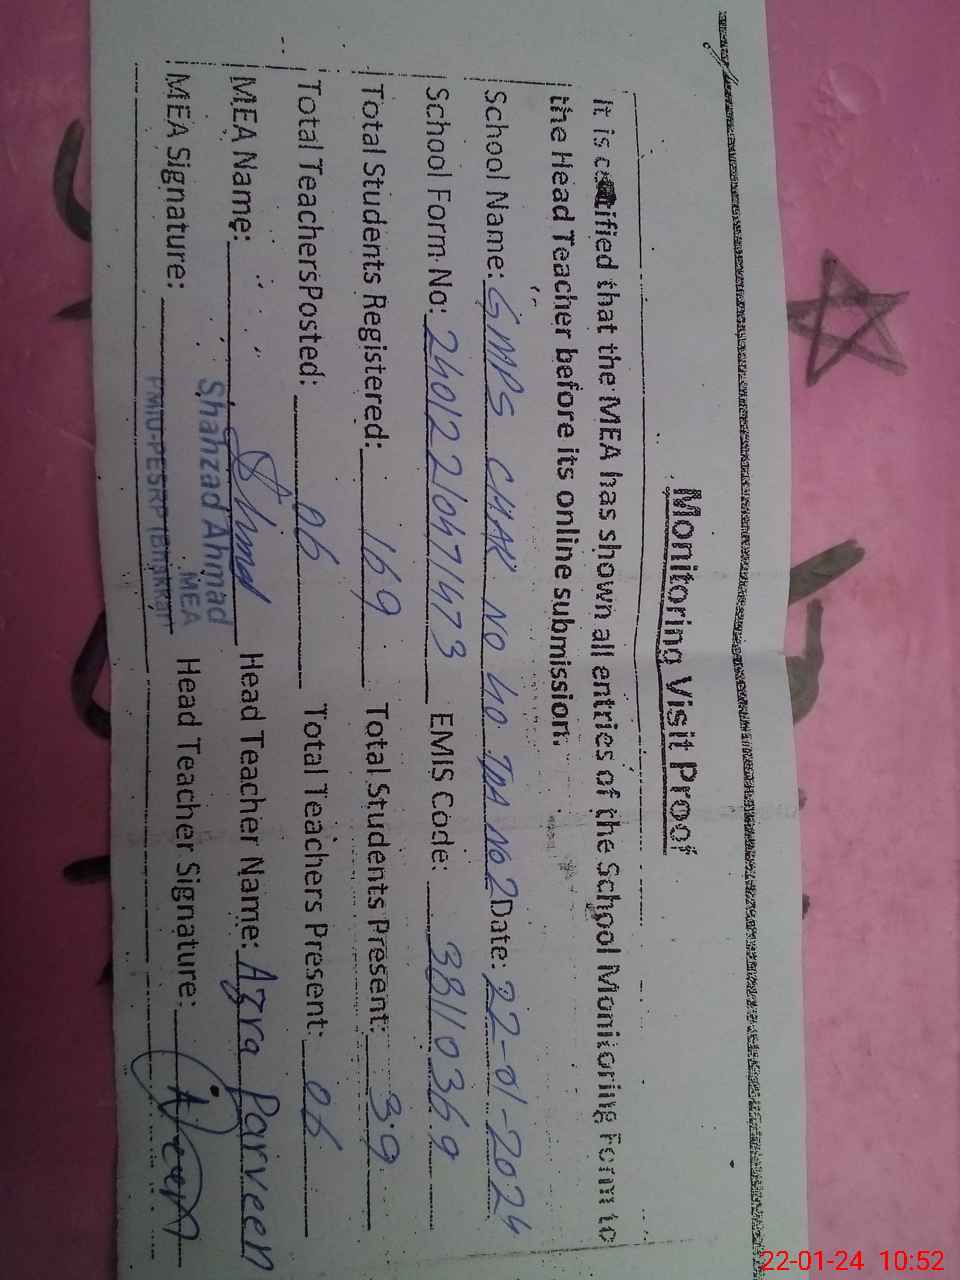 Monitoring Visit Proof
It is certified that the MEA has shown all entries of the School Monitoring Form to
the Head Teacher before its online submission.
School Name: GMPS CHAK NO 40 TDA NO2 Date: 22-01-2024
School Form No: 24012210471473 EMIS Code: 38110369
Total Students Registered: 169 Total Students Present: 39
Total Teachers Posted: 06 Total Teachers Present: 06
MEA Name: Head Teacher Name: Azra Parveen
Shahzad Ahmad
MEA
MEA Signature: Head Teacher Signature:
PMIU-PESRP (Bhakkar)
22-01-24 10:52